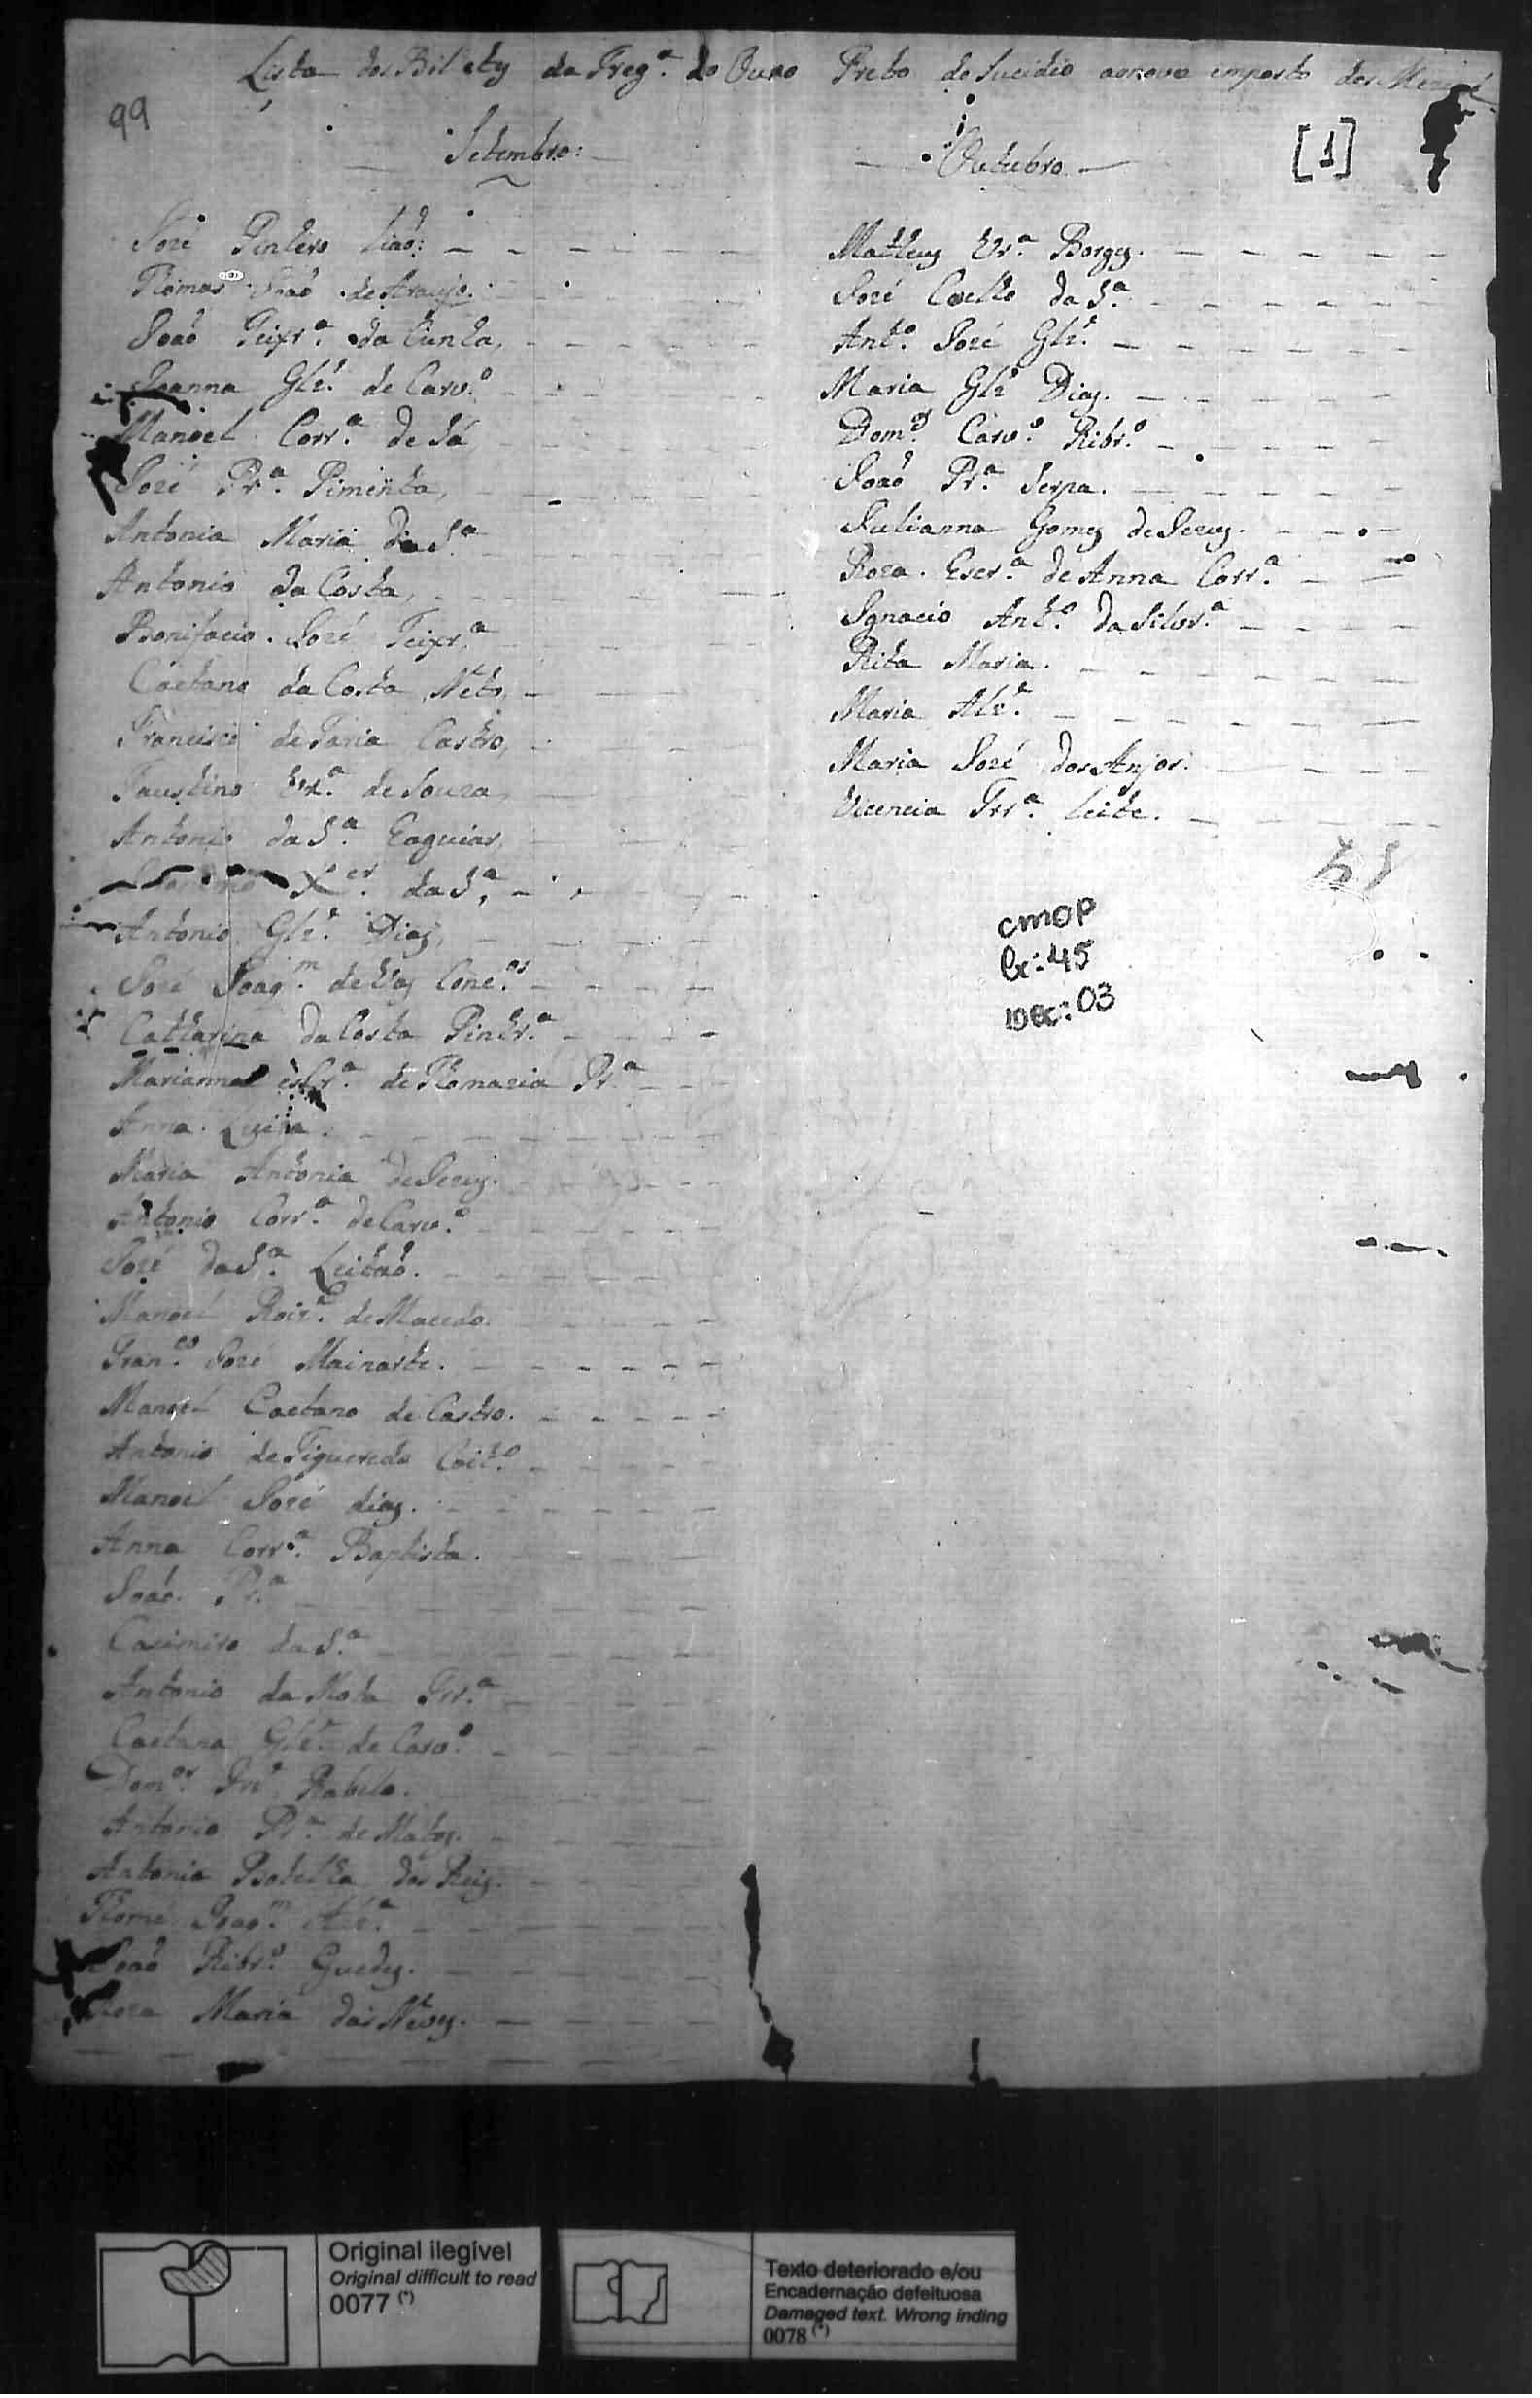 Lista dos Bilhetes da Freg.ª do Ouro Preto do Sucidio ao novo imposto dos
99
Setembro:
José Pinheiro Lião:
Thomas João de Araujo.
João Teixr.ª da Cunha,
Joanna Glz.ˢ de Carv.º
Manoel Corr.ª de Sá
José Pr.ª Pimenta,
Antonia Maria da S.ª
Antonio da Costa,
Bonifacio José Teixr.ª
Caetano da Costa Neto,
Francisco de Faria Castro,
Faustino Vr.ª de Souza,
Antonio da S.ª Eaguiar,
X.er da S.ª
Antonio Glz.ˢ Dias,
José Joaq.m de Vas Conc.os
Catharina da Costa Pinhr.ª
Marianna esCr.ª de Thomazia Pr.ª
Anna Luiza.
Maria Antonia de Jezus.
Antonio Corr.ª de Carv.º
José da S.ª Leitaõ.
Manoel Roiz.ˢ de Macedo.
Fran.co José Mainarte.
Manoel Caetano de Castro.
Antonio de Figueredo Coit.º
Manoel José dias.
Anna Corr.ª Baptista.
João Pr.ª
Cazimiro da S.ª
Antonio da Mota Frr.ª
Caetana Glz.ˢ de Carv.º
Dom.os Rabelo.
Antonio Pr.ª de Matos.
Antonia Botelha dos Reis.
Thomé Joaq.m
João Ribr.º Guedes.
Roza Maria das Neves.
Outubro
[1]
Matheus Vr.ª Borges.
José Coelho da S.ª
Ant.º José Glz.ˢ
Maria Glz Dias.
Dom.os Carv.º Ribr.º
João Pr.ª Serpa.
Julianna Gomes de Jezus.
Roza Escr.ª de Anna Corr.ª
Ignacio Ant.º da Silvr.ª
Rita Maria.
Maria Alz.ˢ
Maria José dos Anjos.
Vicencia Frr.ª Leite.
CMOP
Cx: 45
Doc: 03
Original ilegível
Original difficult to read
0077 (*)
Texto deteriorado e/ou
Encadernação defeituosa
Damaged text. Wrong inding
0078 (*)